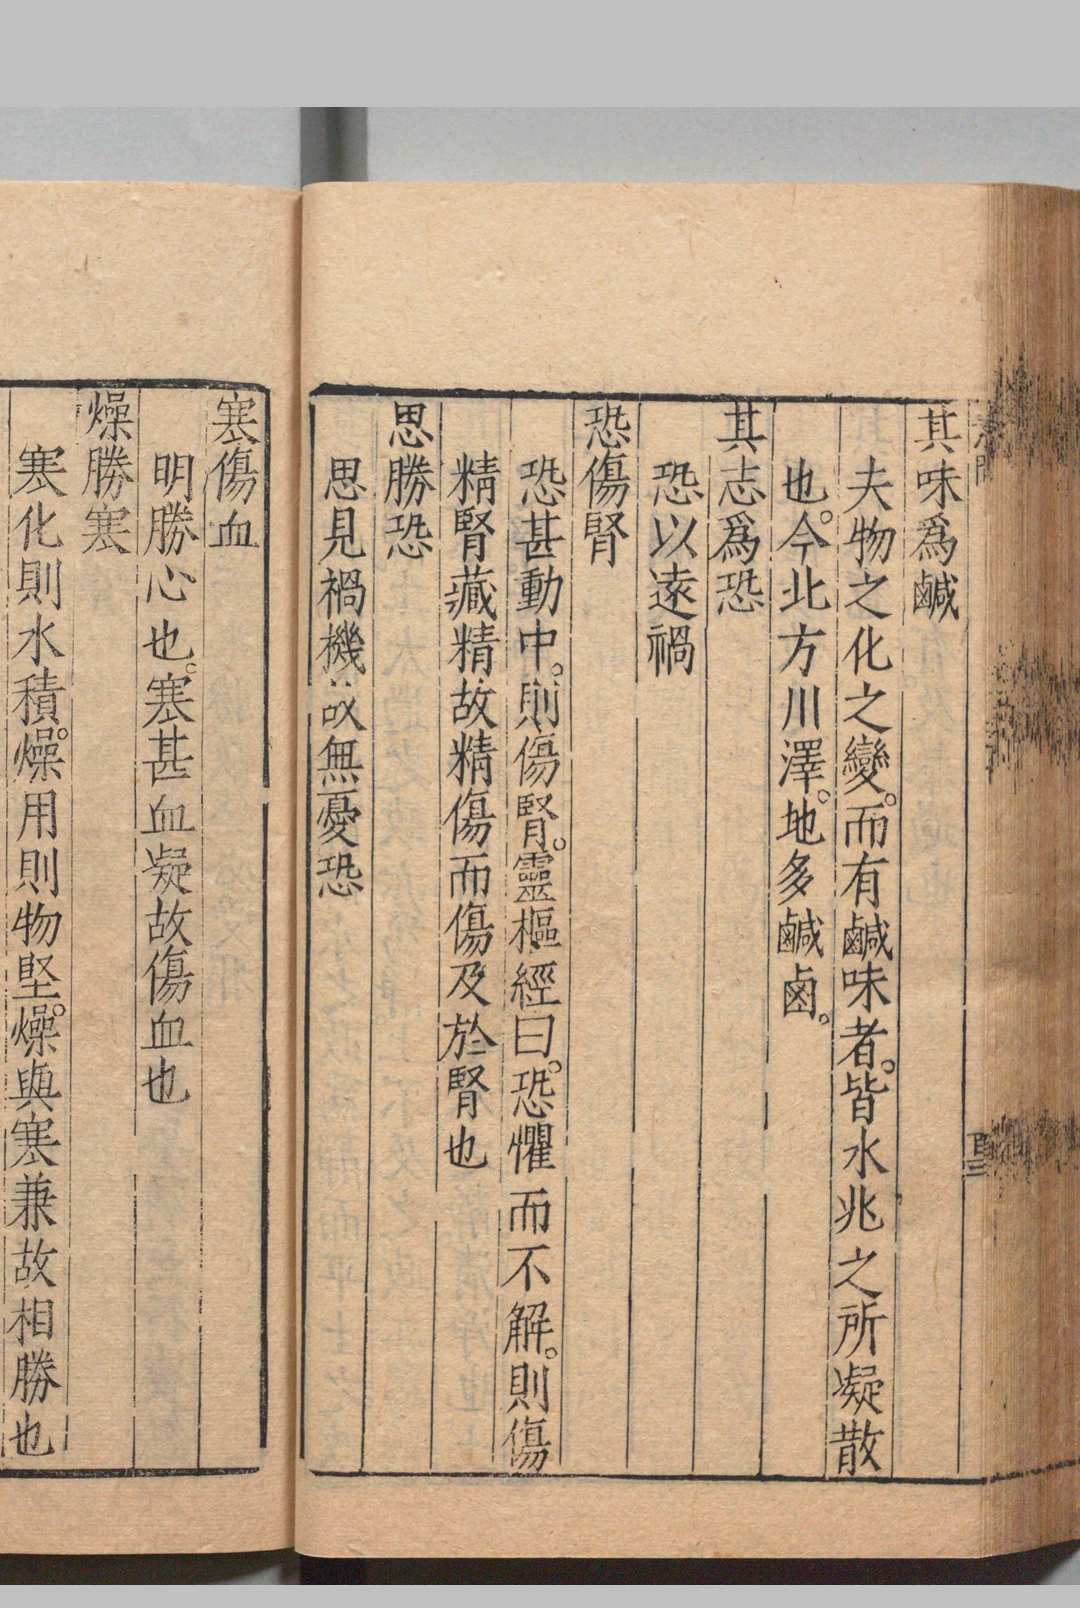 其味爲鹹
夫物之化之變。而有鹹味者。皆水兆之所凝散
也。今北方川澤。地多鹹鹵。
其志爲恐
恐以遠禍
恐傷腎
恐甚動中。則傷腎。靈樞經曰。恐懼而不解。則傷
精腎藏精故精傷而傷及於腎也
思勝恐
思見禍機故無憂恐
寒傷血
明勝心也。寒甚血凝故傷血也
燥勝寒
寒化則水積。燥用則物堅。燥與寒兼故相勝也